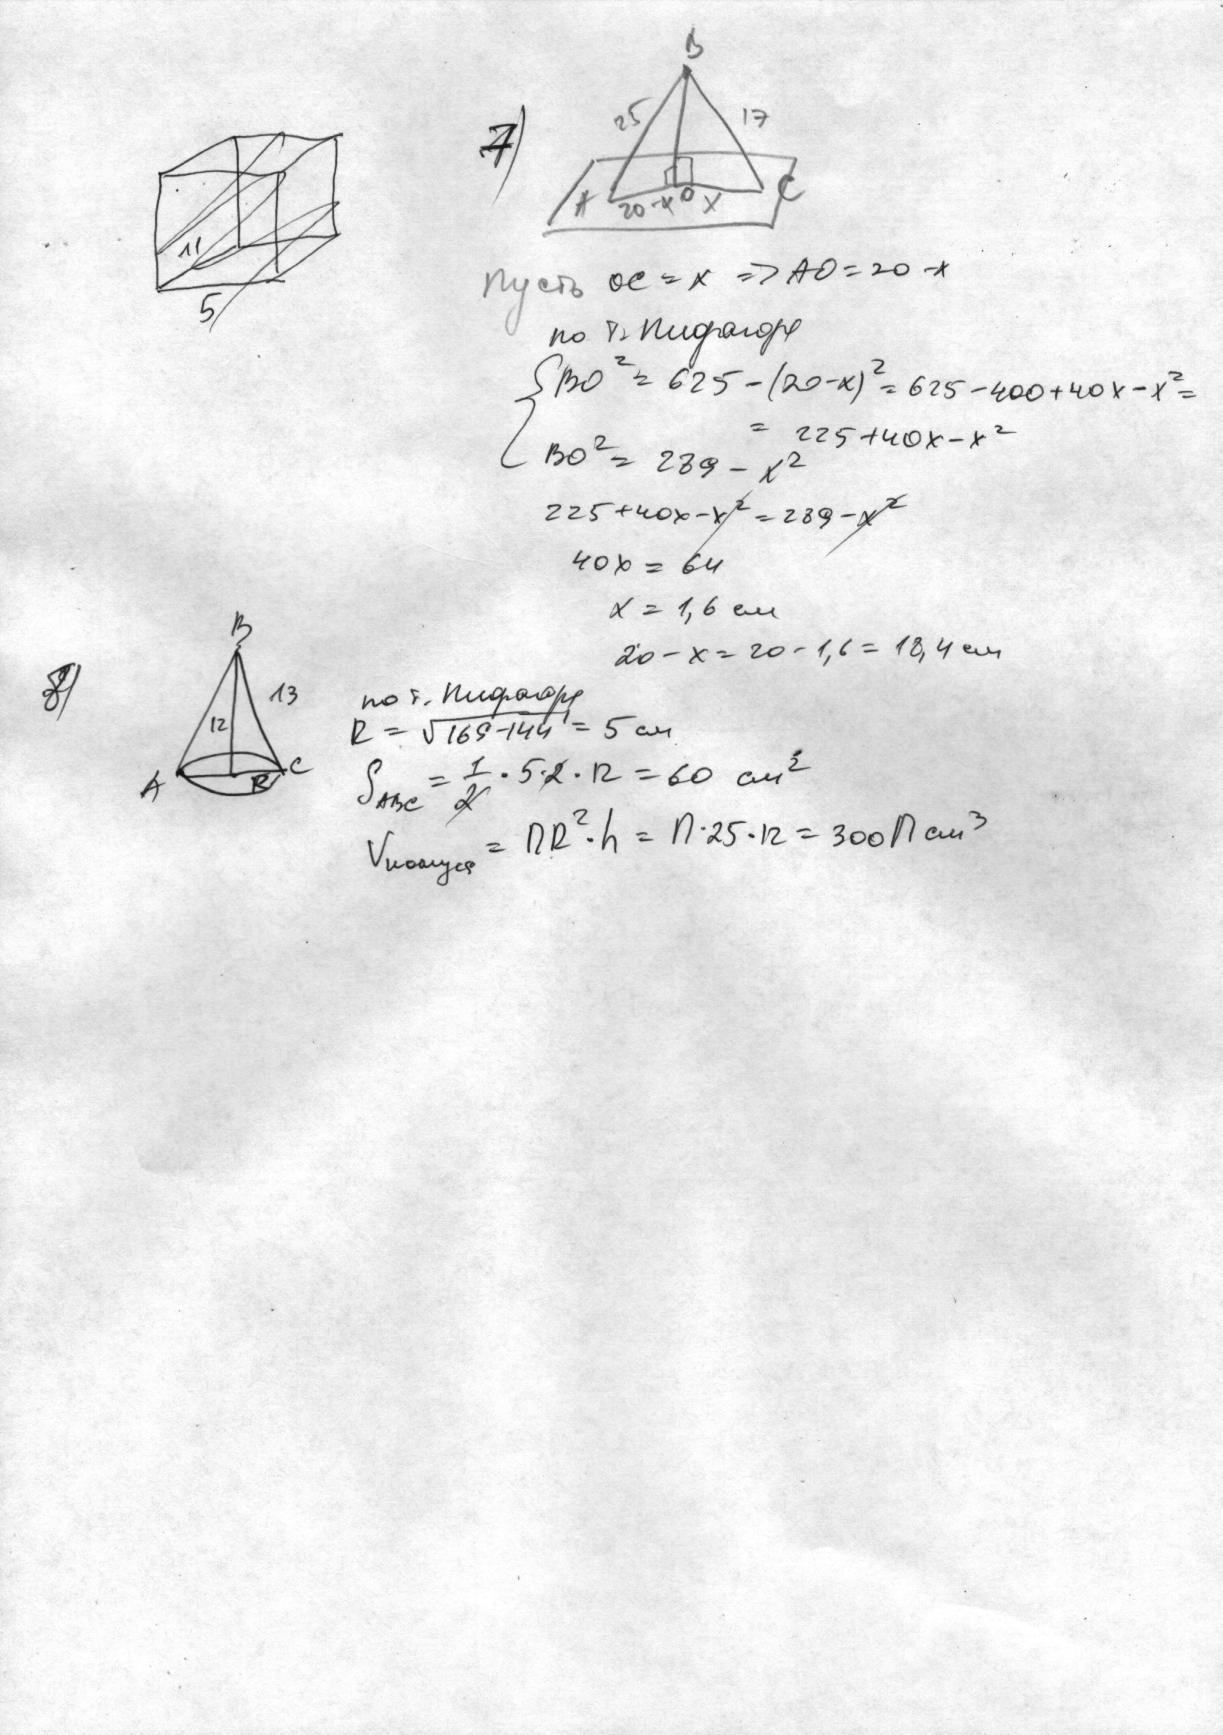 11
5
7)
B
25
17
A
20-x
O
x
C
Пусть OC = x => AO = 20-x
по т. Пифагора
{ BO² = 625 - (20-x)² = 625-400+40x-x² =
= 225+40x-x²
BO² = 289 - x²
225+40x-x² = 289-x²
40x = 64
x = 1,6 см
20-x = 20-1,6 = 18,4 см
8)
B
13
12
A
R
C
по т. Пифагора
R = √169-144 = 5 см
S ABC = 1/2 · 5·2 · 12 = 60 см²
V конуса = ПR² · h = П·25·12 = 300П см³